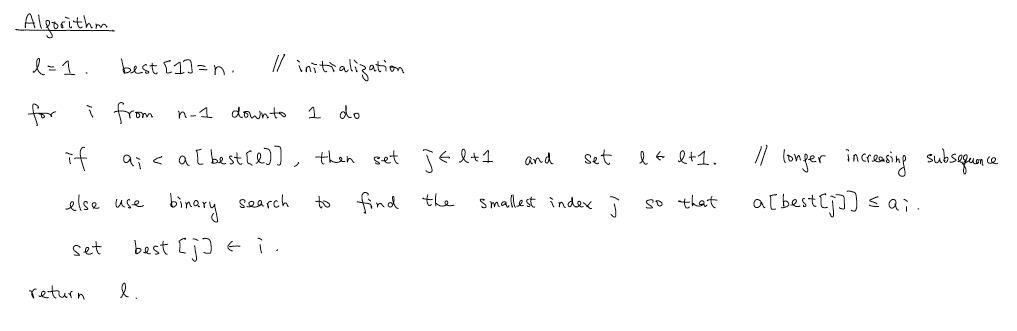 Algorithm
l=1. best[1]=n. // initialization
for i from n-1 downto 1 do
if aᵢ < a[best[l]], then set j ← l+1 and set l ← l+1. // longer increasing subsequence
else use binary search to find the smallest index j so that a[best[j]] ≤ aᵢ.
set best[j] ← i.
return l.